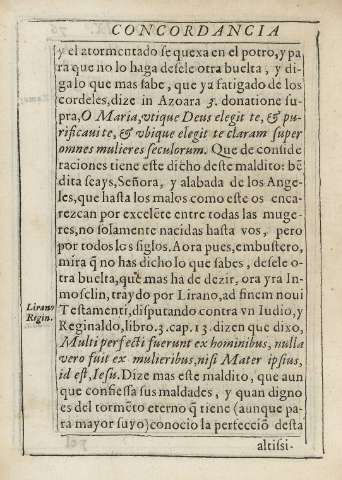 CONCORDANCIA
y el atormentado se quexa en el potro, y pa
ra que no lo haga desele otra buelta, y di-
ga lo que mas sabe, que ya fatigado de los
cordeles, dize in Azoara 3. donatione su-
pra, O Maria, vtique Deus elegit te, & pu-
rificauit te, & vbique elegit te claram super
omnes mulieres seculorum. Que de conside
raciones tiene este dicho deste maldito: bẽ
dita seays, Señora, y alabada de los Ange-
les, que hasta los malos como este os enca-
rezcan por excelẽte entre todas las muge-
res, no solamente nacidas hasta vos, pero
por todos los siglos. Aora pues, embustero,
mira q̃ no has dicho lo que sabes, desele o-
tra buelta, que mas ha de dezir, ora yra In-
moselin, traydo por Lirano, ad finem noui
Lirano
Regin.
Testamenti, disputando contra vn Iudio, y
Reginaldo, libro. 3. cap. 13. dizen que dixo,
Multi perfecti fuerunt ex hominibus, nulla
vero fuit ex mulieribus, nisi Mater ipsius,
id est, Iesu. Dize mas este maldito, que aun
que confiessa sus maldades, y quan digno
es del tormẽto eterno q̃ tiene (aunque pa-
ra mayor suyo) conocio la perfecciõ desta
altissi-